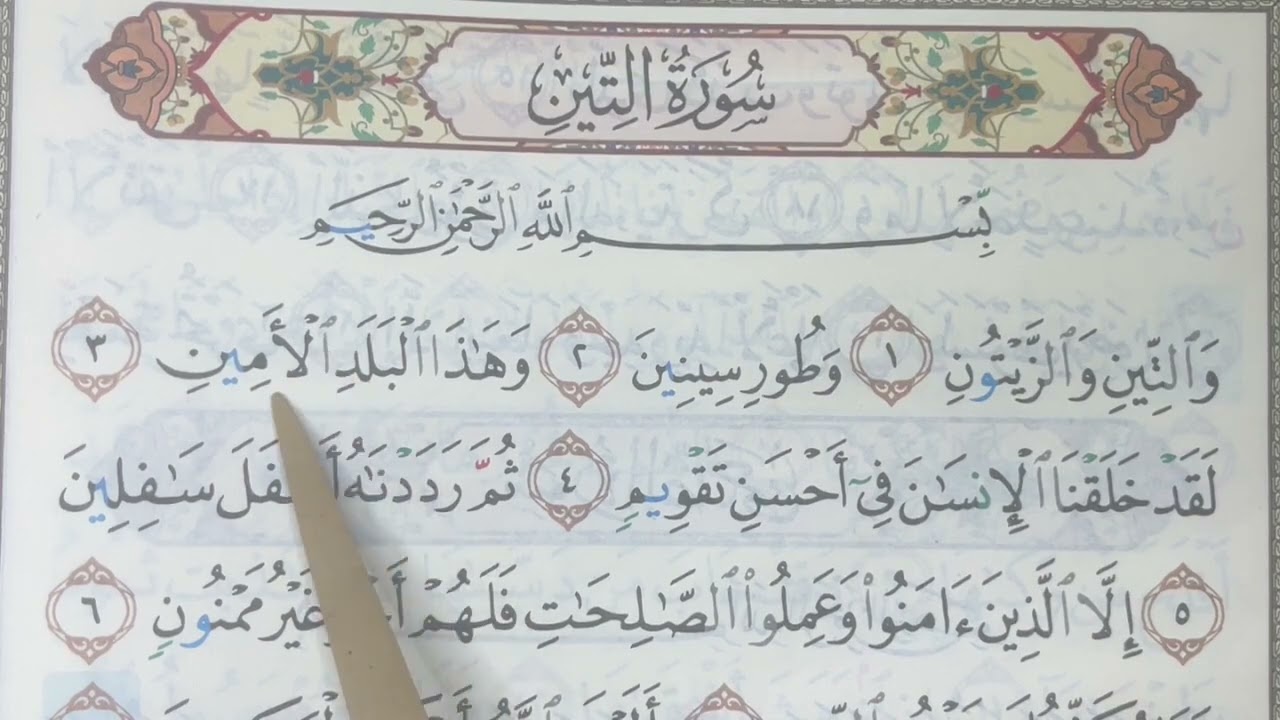 سُورَةُ التِّينِ
بِّسْمِ ٱللَّهِ ٱلرَّحْمَٰنِ ٱلرَّحِيمِ
وَٱلتِّينِ وَٱلزَّيْتُونِ ١ وَطُورِ سِينِينَ ٢ وَهَٰذَا ٱلْبَلَدِ ٱلْأَمِينِ ٣
لَقَدْ خَلَقْنَا ٱلْإِنسَٰنَ فِىٓ أَحْسَنِ تَقْوِيمٍ ٤ ثُمَّ رَدَدْنَٰهُ سَٰفِلِينَ
٥ إِلَّا ٱلَّذِينَ ءَامَنُوا۟ وَعَمِلُوا۟ ٱلصَّٰلِحَٰتِ فَلَهُمْ غَيْرُ مَمْنُونٍ ٦